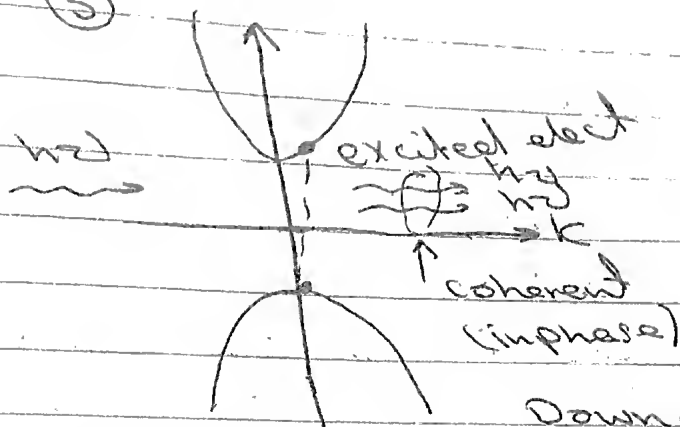 3
hν
excited elect
hν
hν
K
coherent
(inphase)
Down